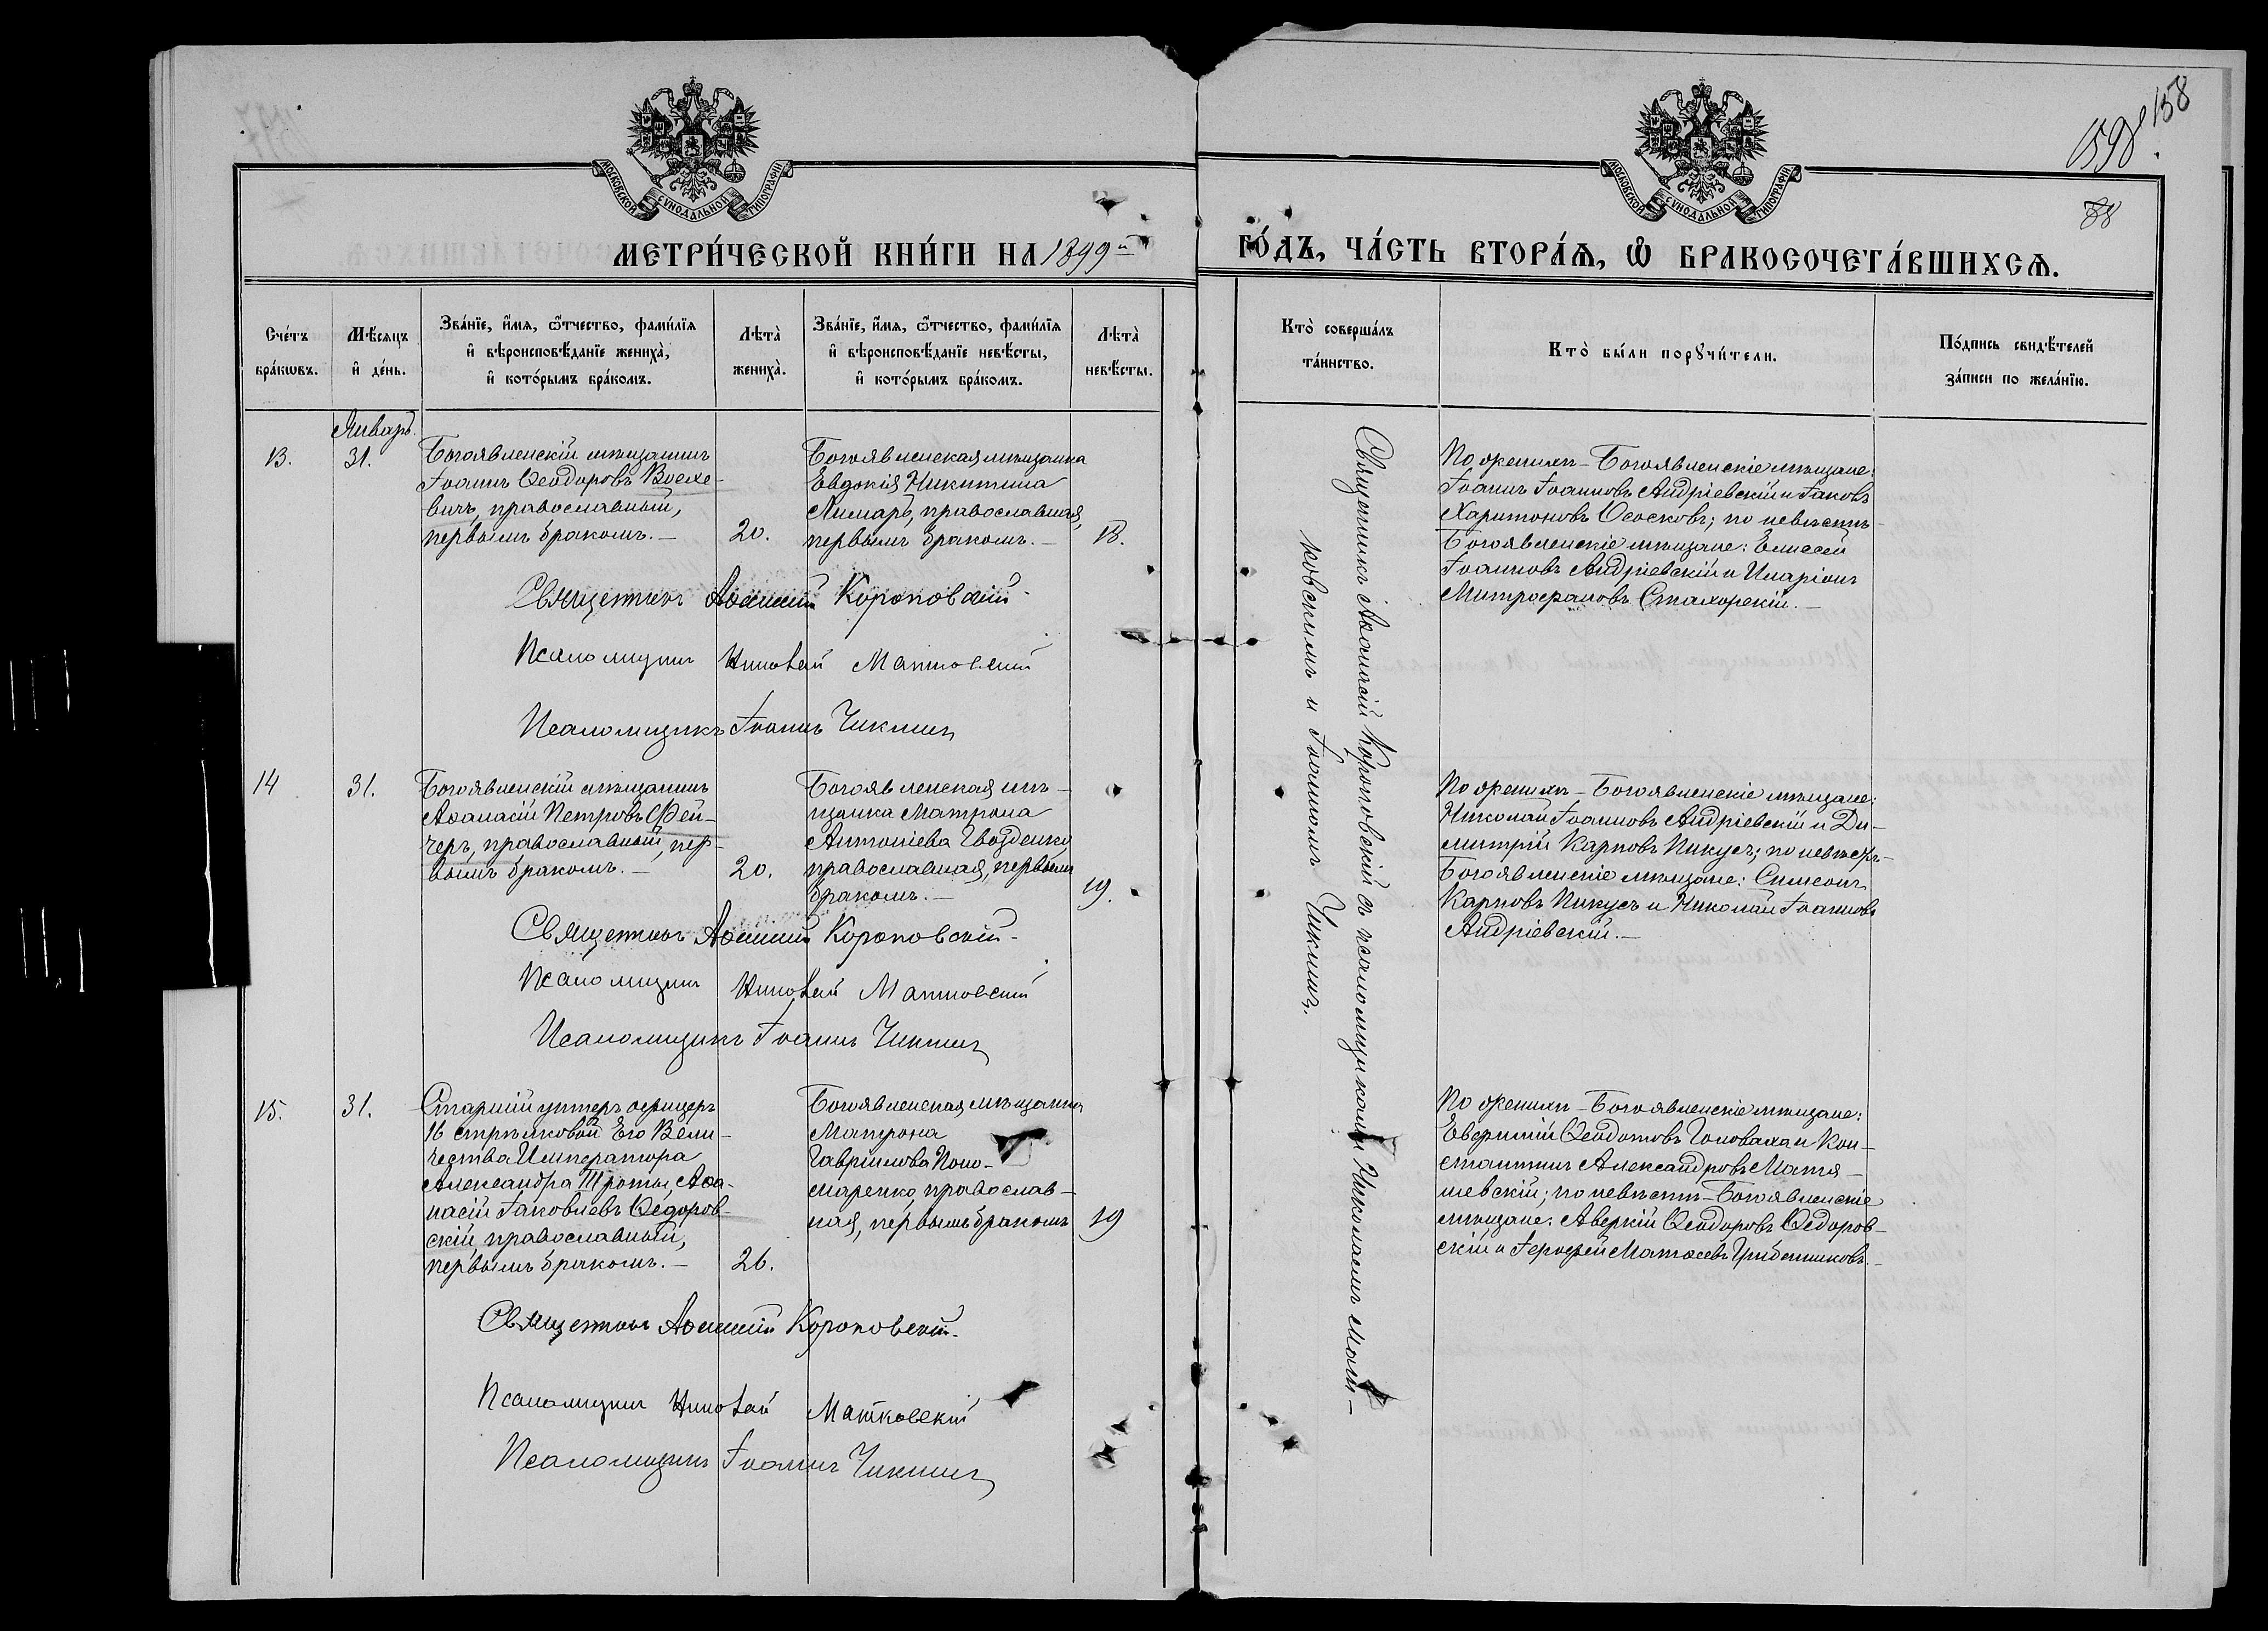 158
159
88
МОСКОВСКОЙ СѴНОДАЛЬНОЙ ТИПОГРАФІИ
МОСКОВСКОЙ СѴНОДАЛЬНОЙ ТИПОГРАФІИ
МЕТРИ́ЧЕСКОЙ КНИ́ГИ НА 1899й ГО́ДЪ, ЧА́СТЬ ВТОРА́Ѧ, Ѽ БРАКОСОЧЕТА́ВШИХСѦ.
Сче́тъ
бра́кωвъ.
Мѣ́сѧцъ
и҆ де́нь.
Зва́нїе, и҆́мѧ, ѻ҆́тчество, фами́лїѧ
и҆ вѣроисповѣ́данїе жениха̀,
и҆ кото́рымъ бра́комъ.
Лѣта̀
жениха̀.
Зва́нїе, и҆́мѧ, ѻ҆́тчество, фами́лїѧ
и҆ вѣроисповѣ́данїе невѣ́сты,
и҆ кото́рымъ бра́комъ.
Лѣта̀
невѣ́сты.
Кто̀ соверша́лъ
та́инство.
Кто̀ бы́ли порꙋчи́тели.
По́дпись свидѣ́телей
за́писи по жела́нїю.
Январь.
13.
31.
Богоявленскій мѣщанинъ
Іоаннъ Ѳеодоровъ Воехе-
вичъ, православный,
первымъ бракомъ.—
20.
Богоявленская мѣщанка
Евдокія Никитина
Лимарь, православная,
первымъ бракомъ.—
18.
По женихѣ – Богоявленскіе мѣщане:
Іоаннъ Іоанновъ Андріевскій и Іаковъ
Харитоновъ Ососковъ; по невѣстѣ –
Богоявленскіе мѣщане: Елисей
Іоанновъ Андріевскій и Иларіонъ
Митрофановъ Стахорскій.—
Священникъ Аѳанасій Короповскій
Псаломщикъ Николай Матковскій
Псаломщикъ Іоаннъ Чикминъ
Священникъ Аѳанасій Короповскій съ псаломщиками Николаемъ Мат-
ковскимъ и Іоанномъ Чикминъ.
14
31.
Богоявленскій мѣщанинъ
Аѳанасій Петровъ Фей-
черъ, православный, пер-
вымъ бракомъ.—
20.
Богоявленская мѣ-
щанка Матрона
Антоніева Гвозденко,
православная, первымъ
бракомъ.—
19.
По женихѣ – Богоявленскіе мѣщане:
Николай Іоанновъ Андріевскій и Ди-
митрій Карповъ Пикусъ; по невѣстѣ –
Богоявленскіе мѣщане: Симеонъ
Карповъ Пикусъ и Николай Іоанновъ
Андріевскій.—
Священникъ Аѳанасій Короповскій
Псаломщикъ Николай Матковскій
Псаломщикъ Іоаннъ Чикминъ
15.
31.
Старшій унтеръ офицеръ
16 стрѣлковой Его Вели-
чества Императора
Александра III роты, Аѳа-
насій Іаковлевъ Ѳедоров-
скій православный,
первымъ бракомъ.—
26.
Богоявленская мѣщанка
Матрона
Гавріилова Поно-
маренко, православ-
ная, первымъ бракомъ
19
По женихѣ – Богоявленскіе мѣщане:
Евфимій Ѳеодотовъ Головаха и Кон-
стантинъ Александровъ Матя-
шевскій; по невѣстѣ – Богоявленскіе
мѣщане: Аверкій Ѳеодоровъ Ѳедоров-
скій и Іероѳей Матѳеевъ Грибенниковъ.
Священникъ Аѳанасій Короповскій.
Псаломщикъ Николай Матковскій
Псаломщикъ Іоаннъ Чикминъ